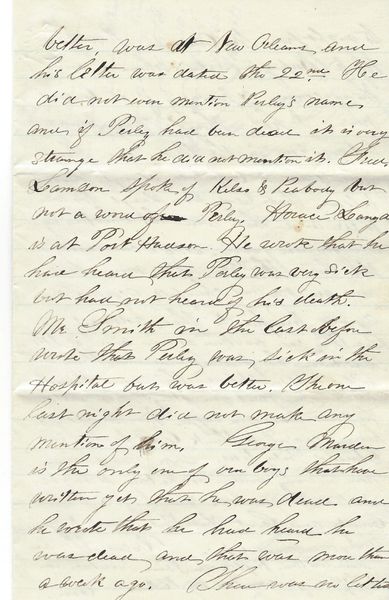 better, was at New Orleans, and
his letter was dated the 22nd. He
did not even mention Perley's name,
and if Perley have been dead it is very
strange that he did not mention it. Fred
Lamson spoke of Kelso & Peabody but
not a word of Perley. Horace Lang
is at Port Hudson. He wrote that he
have heard that Perley was very sick
but had not heard of his death.
Mr. Smith in the last before
wrote that Perley was sick in the
Hospital but was better. The one
last night did not make any
mention of him. George Marden
is the only one of our boys that have
written yet that he was dead and
he wrote that he had heard he
was dead, and that was more than
a week ago. There was no letter